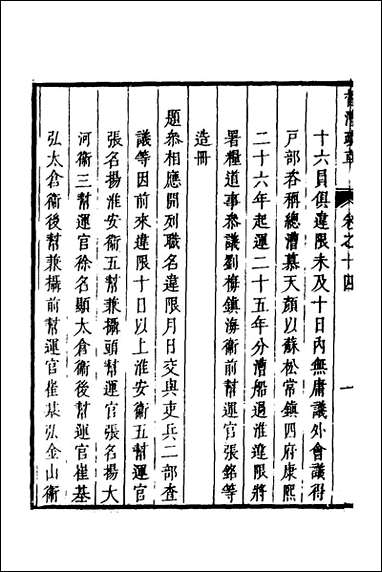 十六員俱違限未及十日內無庸議外會議得
戶部咨稱總漕慕天顏以蘇松常鎮四府康熙
二十六年起運二十五年分漕船過淮違限將
署糧道事叅議劉梅鎮海衛前幫運官張銘等
造冊
題叅相應開列職名違限月日交與吏兵二部查
議等因前來違限十日以上淮安衛五幫運官
張名揚淮安衛五幫兼攝頭幫運官張名揚大
河衛三幫運官徐名顯太倉衛後幫運官崔基
弘太倉衛後幫兼攝前幫運官崔基弘金山衛
卷之十四
一